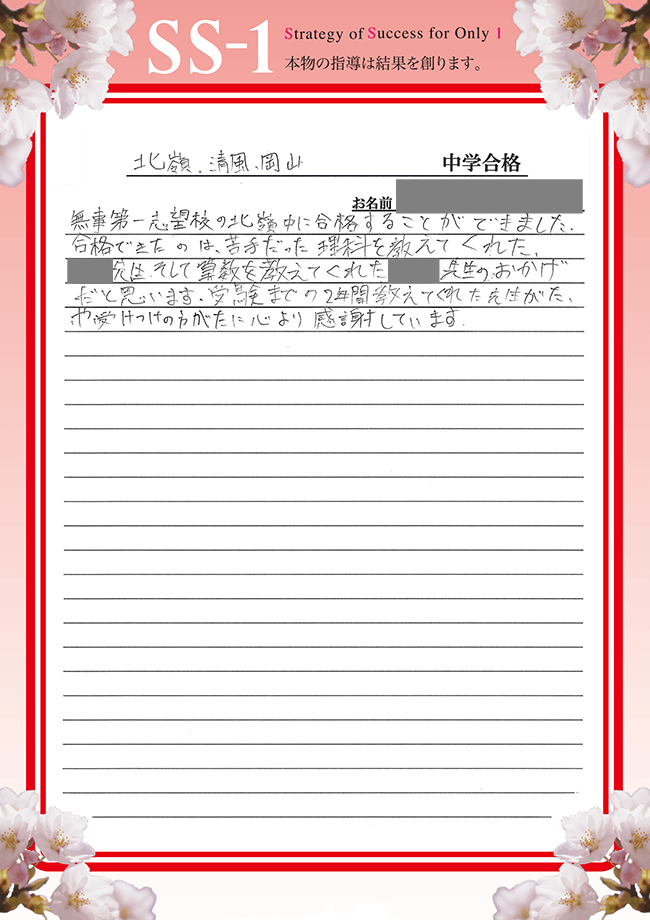 SS-1
Strategy of Success for Only 1
本物の指導は結果を創ります。
北嶺、清風、岡山 中学合格
お名前
無事第一志望校の北嶺中に合格することができました。
合格できたのは、苦手だった理科を教えてくれた、
先生、そして算数を教えてくれた 先生のおかげ
だと思います。受験までの2年間教えてくれた先生がた、
や受けつけのかたがたに心より感謝しています。